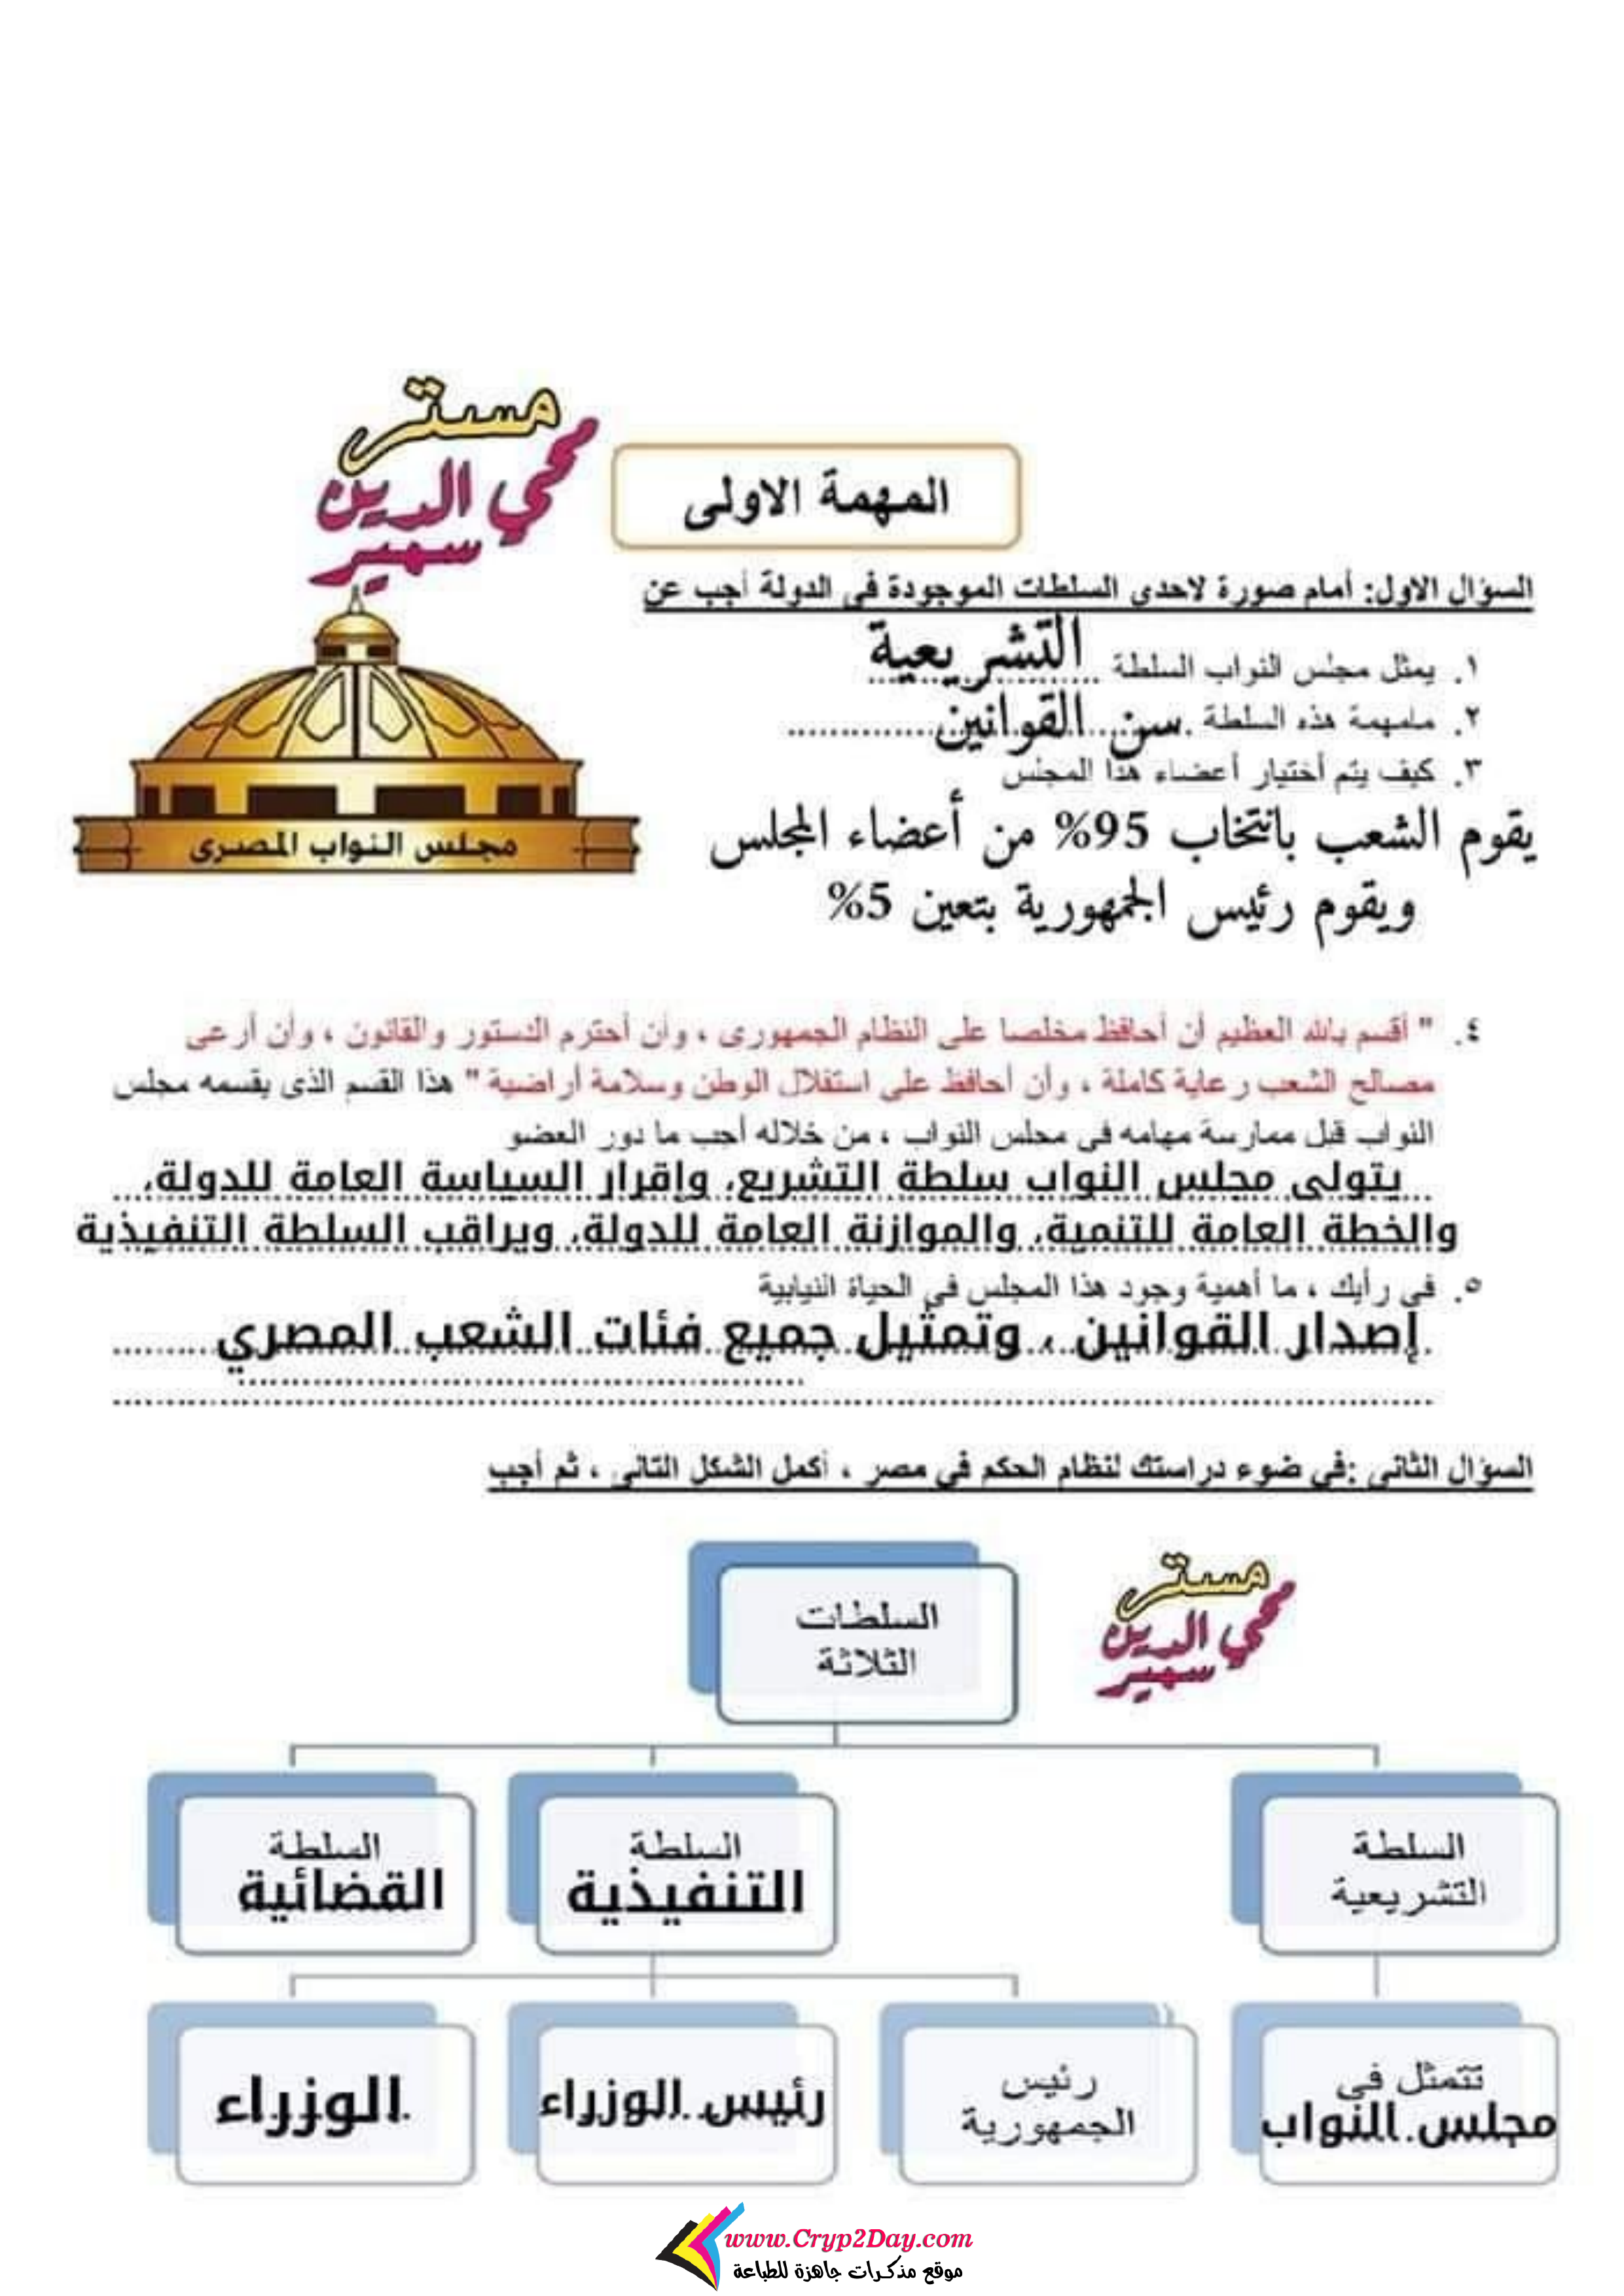 مستر
محي الدين
سهير
المهمة الاولى
السؤال الاول: أمام صورة لاحدى السلطات الموجودة فى الدولة أجب عن
١. يمثل مجلس النواب السلطة التشريعية
٢. مامهمة هذه السلطة سن القوانين
٣. كيف يتم أختيار أعضاء هذا المجلس
يقوم الشعب بانتخاب 95% من أعضاء المجلس
ويقوم رئيس الجمهورية بتعين 5%
مجلس النواب المصرى
٤. " أقسم بالله العظيم أن أحافظ مخلصا على النظام الجمهورى ، وأن أحترم الدستور والقانون ، وأن أرعى
مصالح الشعب رعاية كاملة ، وأن أحافظ على استقلال الوطن وسلامة أراضية " هذا القسم الذى يقسمه مجلس
النواب قبل ممارسة مهامه فى مجلس النواب ، من خلاله أجب ما دور العضو
يتولى مجلس النواب سلطة التشريع، وإقرار السياسة العامة للدولة،
والخطة العامة للتنمية، والموازنة العامة للدولة، ويراقب السلطة التنفيذية
٥. فى رأيك ، ما أهمية وجود هذا المجلس فى الحياة النيابية
إصدار القوانين ، وتمثيل جميع فئات الشعب المصري
السؤال الثانى :فى ضوء دراستك لنظام الحكم فى مصر ، أكمل الشكل التالى ، ثم أجب
مستر
محي الدين
سهير
السلطات
الثلاثة
السلطة
التشريعية
السلطة
التنفيذية
السلطة
القضائية
تتمثل فى
مجلس النواب
رئيس
الجمهورية
رئيس الوزراء
الوزراء
www.Cryp2Day.com
موقع مذكرات جاهزة للطباعة